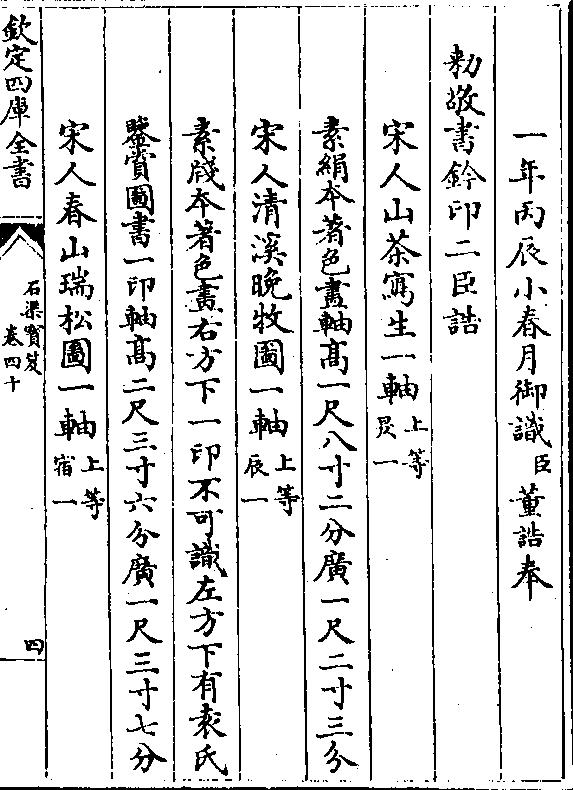 一年丙辰小春月御識臣董誥奉
勅敬書鈐印二臣誥
宋人山茶寫生一軸上等昃一
素絹本著色畫軸高一尺八寸二分廣一尺二寸三分
宋人清溪晚牧圖一軸上等辰一
素牋本著色畫右方下一印不可識左方下有袁氏
鑒賞圖書一印軸髙二尺三寸六分廣一尺三寸七分
宋人春山瑞松圖一軸上等宿一
欽定四庫全書
石渠寳笈
卷四十
四